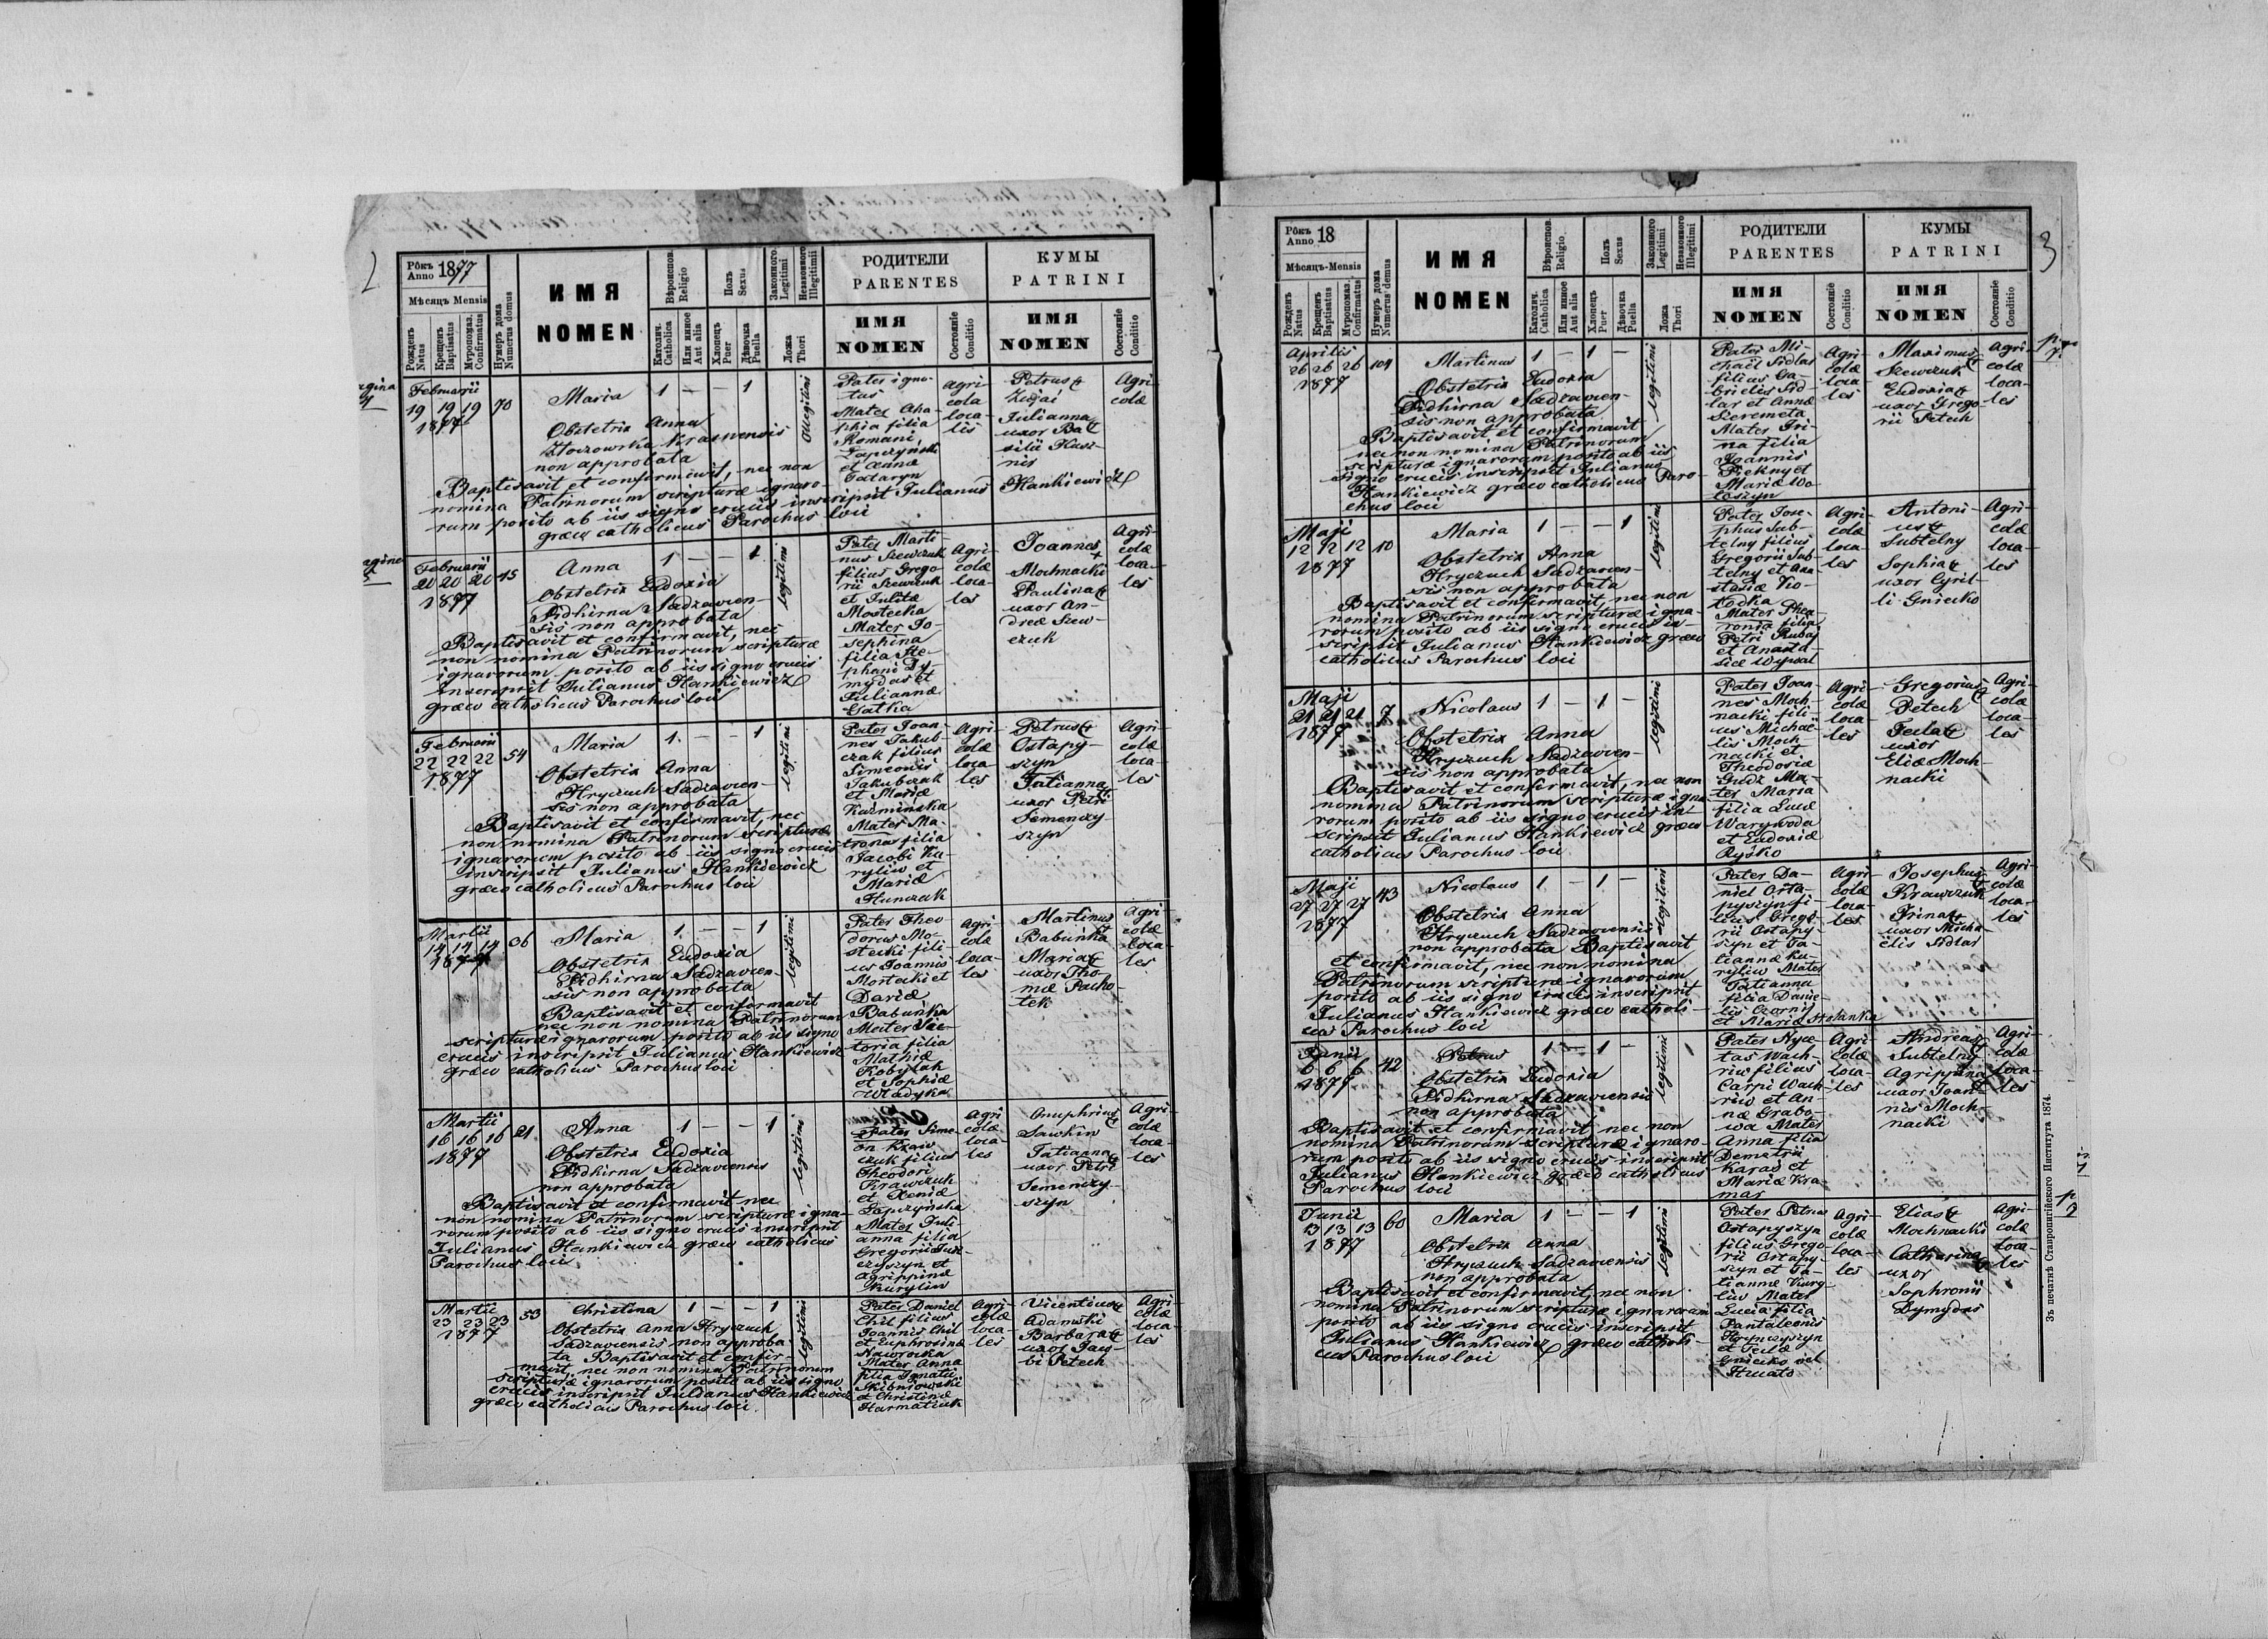 2
Рôкъ
Anno 1877
Мѣсяцъ Mensis
Рожденъ
Natus
Крещенъ
Baptisatus
Мѵропомаз.
Confirmatus
Нумеръ дома
Numerus domus
ИМЯ
NOMEN
Вѣроиспов.
Religio
Католич.
Catholica
Или инное
Aut alia
Полъ
Sexus
Хлопецъ
Puer
Дѣвочка
Puella
Законного
Legitimi
Незаконного
Illegitimii
Ложа
Thori
РОДИТЕЛИ
PARENTES
ИМЯ
NOMEN
Состоянiе
Conditio
КУМЫ
PATRINI
ИМЯ
NOMEN
Состоянiе
Conditio
Februarii
19 19 19 70
1877
Maria 1 — — 1
Obstetrix Anna
Krasnensis
non approbata
Baptisavit et confirmavit, nec non
nomina Patrinorum scripturæ ignaro-
rum posito ab iis signo crucis inscripsit Julianus Hankiewicz
græco catholicus Parochus loci
illegitimi
Pater igno-
tus
Mater Aha-
phia filia
Romani
et Annæ
Agri-
cola
loca-
lis
Petrus
Julianna
uxor Ba-
silii
Agri-
colæ
Februarii
20 20 20 45
1877
Anna 1 — — 1
Obstetrix Eudoxia
Pidhirna Sadzavien-
sis non approbata
Baptisavit et confirmavit, nec
non nomina Patrinorum scripturæ
ignarorum posito ab iis signo crucis
inscripsit Julianus Hankiewicz
græco catholicus Parochus loci
legitimi
Pater Marti-
nus Szewczuk
filius Grego-
rii Szewczuk
et Julitæ
Mostecka
Mater Jo-
sephina
filia Ste-
phani Dy-
mydas et
Juliannæ
Gatka
Agri-
colæ
loca-
les
Joannes
Mochnacki
Paulina
uxor An-
dreæ Szew-
czuk
Agri-
colæ
loca-
les
Februarii
22 22 22 54
1877
Maria 1 — — 1
Obstetrix Anna
Hryczuch Sadzavien-
sis non approbata
Baptisavit et confirmavit, nec
non nomina Patrinorum scripturæ
ignarorum posito ab iis signo crucis
inscripsit Julianus Hankiewicz
græco catholicus Parochus loci
legitimi
Pater Joan-
nes Jakub-
czak filius
Simeonis
Jakubczak
et Mariæ
Kuzminska
Mater Ma-
trona filia
Jacobi Ku-
ryliw et
Mariæ
Hunczak
Agri-
colæ
loca-
les
Petrus
Ostapy-
szyn
Julianna
uxor Petri
Semenczy-
szyn
Agri-
colæ
loca-
les
Martii
14 14 14 36
1877
Maria 1 — — 1
Obstetrix Eudoxia
Pidhirna Sadzavien-
sis non approbata
Baptisavit et confirmavit
nec non nomina Patrinorum
scripturæ ignarorum posito ab iis signo
crucis inscripsit Julianus Hankiewicz
græco catholicus Parochus loci
legitimi
Pater Theo-
dorus Mo-
stecki fili-
us Joannis
Mostecki et
Dariæ
Babunka
Mater Vic-
toria filia
Mathiæ
Kobylak
et Sophiæ
Wladyka
Agri-
colæ
loca-
les
Martinus
Babunka
Maria
uxor Tho-
mæ Pacho-
tek
Agri-
colæ
loca-
les
Martii
16 16 16 21
1877
Anna 1 — — 1
Obstetrix Eudoxia
Pidhirna Sadzaviensis
non approbata
Baptisavit et confirmavit nec
non nomina Patrinorum scripturæ igna-
rorum posito ab iis signo crucis inscripsit
Julianus Hankiewicz græco catholicus
Parochus loci
legitimi
Pater Sime-
on Kraw-
czuk filius
Theodori
Krawczuk
et Xeniæ
Łapczynska
Mater Juli-
anna filia
Gregorii
et
Agrippinæ
Kuryliw
Agri-
colæ
loca-
les
Onuphrius
Sawkiw
Tatianna
uxor Petri
Semenczy-
szyn
Agri-
colæ
loca-
les
Martii
23 23 23 53
1877
Christina 1 — — 1
Obstetrix Anna Hryczuch
Sadzaviensis non approba-
ta Baptisavit et confir-
mavit, nec non nomina Patrinorum
scripturæ ignarorum posito ab iis signo
crucis inscripsit Julianus Hankiewicz
græco catholicus Parochus loci.
legitimi
Pater Daniel
Chil filius
Joannis Chil
et Euphrosinæ
Naworocka
Mater Anna
filia Ignatii
et Christinæ
Harmatiuk
Agri-
colæ
loca-
les
Vicentius
Adamski
Barbara
uxor Jaco-
bi Petech
Agri-
colæ
loca-
les
3
Рôкъ
Anno 18
Мѣсяцъ-Mensis
Рожденъ
Natus
Крещенъ
Baptisatus
Мѵропомаз.
Confirmatus
Нумеръ дома
Numerus domus
ИМЯ
NOMEN
Вѣроиспов.
Religio
Католич.
Catholica
Или инное
Aut alia
Полъ
Sexus
Хлопецъ
Puer
Дѣвочка
Puella
Законного
Legitimi
Незаконного
Illegitimi
Ложа
Thori
РОДИТЕЛИ
PARENTES
ИМЯ
NOMEN
Состоянiе
Conditio
КУМЫ
PATRINI
ИМЯ
NOMEN
Состоянiе
Conditio
Aprilis
26 26 26 104
1877
Martinus 1 — 1 —
Obstetrix Eudoxia
Pidhirna Sadzavien-
sis non approbata
Baptisavit et confirmavit
nec non nomina Patrinorum
scripturæ ignarorum posito ab iis
signo crucis inscripsit Julianus
Hankiewicz græco catholicus Paro-
chus loci
legitimi
Pater Mi-
chaël Sidlar
filius Ga-
brielis Sid-
lar et Annæ
Szeremeta
Mater Iri-
na filia
Joannis
Piekny et
Mariæ Wo-
loszyn
Agri-
colæ
loca-
les
Maximus
Szewczuk
Eudoxia
uxor Grego-
rii Petech
Agri-
colæ
loca-
les
Maji
12 12 12 10
1877
Maria 1 — — 1
Obstetrix Anna
Hryczuch Sadzavien-
sis non approbata
Baptisavit et confirmavit, nec non
nomina Patrinorum scripturæ igna-
rorum posito ab iis signo crucis in-
scripsit Julianus Hankiewicz græco
catholicus Parochus loci
legitimi
Pater Jose-
phus Sub-
telny filius
Gregorii Sub-
telny et Ana-
stasiæ Ko-
lodka
Mater Phea-
ronia filia
Petri Rubaj
et Anasta-
siæ Wywal
Agri-
colæ
loca-
les
Antoni-
us
Subtelny
Sophia
uxor Cyril-
li Gniecko
Agri-
colæ
loca-
les
Maji
21 21 21 7
1877
Nicolaus 1 — 1 —
Obstetrix Anna
Hryczuch Sadzavien-
sis non approbata
Baptisavit et confirmavit, nec non
nomina Patrinorum scripturæ igna-
rorum posito ab iis signo crucis in-
scripsit Julianus Hankiewicz græco
catholicus Parochus loci
legitimi
Pater Joan-
nes Moch-
nacki fili-
us Michaë-
lis Moch-
nacki et
Theodosiæ
Gudz Ma-
ter Maria
filia Lucæ
Warywoda
et Eudoxiæ
Ryśko
Agri-
colæ
loca-
les
Gregorius
Petech
Tecla
uxor
Eliæ Moch-
nacki
Agri-
colæ
loca-
les
Maji
27 27 27 43
1877
Nicolaus 1 — 1 —
Obstetrix Anna
Hryczuch Sadzaviensis
non approbata Baptisavit
et confirmavit, nec non nomina
Patrinorum scripturæ ignarorum
posito ab iis signo crucis inscripsit
Julianus Hankiewicz græco catholi-
cus Parochus loci
legitimi
Pater Da-
niel Osta-
pyszyn fi-
lius Grego-
rii Ostapy-
szyn et Ta-
tiannæ Ku-
ryliw Mater
Tatianna
filia Danie-
lis Czornij
et Mariæ Stolanka
Agri-
colæ
loca-
les
Josephus
Krawczuk
Irina
uxor Micha-
ëlis Sidlar
Agri-
colæ
loca-
les
Junii
6 6 6 42
1877
Petrus 1 — 1 —
Obstetrix Eudoxia
Pidhirna Sadzaviensis
non approbata
Baptisavit et confirmavit nec non
nomina Patrinorum scripturæ ignaro-
rum posito ab iis signo crucis inscripsit
Julianus Hankiewicz græco catholicus
Parochus loci
legitimi
Pater Nyce-
tas Wach-
riw filius
Carpi Wach-
riw et An-
næ Grabo-
wa Mater
Anna filia
Demetrii
Karas et
Mariæ Kra-
mar
Agri-
colæ
loca-
les
Andreas
Subtelny
Agrippina
uxor Joan-
nis Moch-
nacki
Agri-
colæ
loca-
les
Junii
13 13 13 60
1877
Maria 1 — — 1
Obstetrix Anna
Hryczuch Sadzaviensis
non approbata
Baptisavit et confirmavit, nec non
nomina Patrinorum scripturæ ignarorum
posito ab iis signo crucis inscripsit
Julianus Hankiewicz græco catholi-
cus Parochus loci
legitimi
Pater Petrus
Ostapyszyn
filius Grego-
rii Ostapy-
szyn et Ta-
tiannæ Kury-
liw Mater
Lucia filia
Pantaleonis
Hrynczyszyn
et Teclæ
Gniecko vel
Agri-
colæ
loca-
les
Elias
Mochnacki
Catharina
uxor
Sophronii
Dymydas
Agri-
colæ
loca-
les
Зъ печатнѣ Ставропигiйского Института 1874.